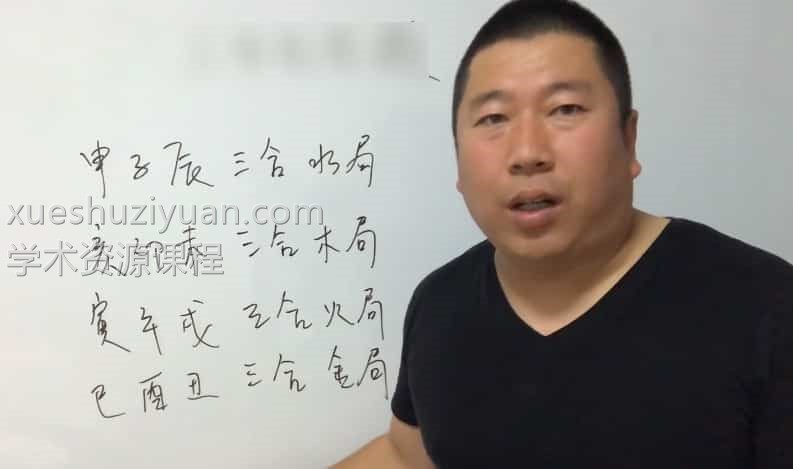 申子辰三合水局
xueshuziyuan.com
亥卯未 三合木局
学术资源课程
寅午戌 三合火局
巳酉丑 三合金局